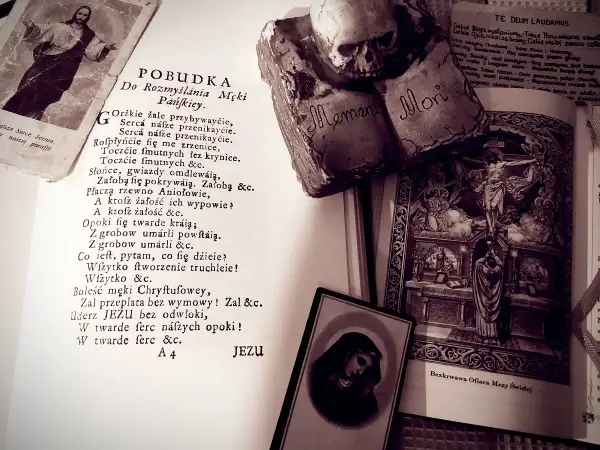 POBUDKA
Do Rozmyślánia Męki
Páńſkiey.
GOrżkie żale przybywayćie,
Sercá náſze przenikayćie.
Sercá náſze przenikayćie.
Roſpłyńćie ſię me zrzenice,
Toczćie ſmutnych łez krynice.
Toczćie ſmutnych &c.
Słońce, gwiazdy omdlewáią,
Załobą ſię pokrywáią. Załobą &c.
Płaczą rzewno Aniołowie,
A ktoſz żáłość ich wypowie?
A ktoſz żáłość &c.
Opoki ſię twarde kráią,
Z grobow umárli powſtáią.
Z grobow umárli &c.
Co ieſt, pytam, co ſię dźieie?
Wſzytko ſtworzenie truchleie!
Wſzytko &c.
Boleść męki Chryſtuſowey,
Zal przeplata bez wymowy! Zal &c.
Uderz JEZU bez odwłoki,
W twarde ſerc náſzych opoki!
W twarde ſerc &c.
A 4 JEZU
Memento Mori
TE DEUM LAUDAMUS
Ciebie Boga wysławiamy,
Bezkrwawa Ofiara Mszy Świętej
Serce Jezusa,
naszej parafii